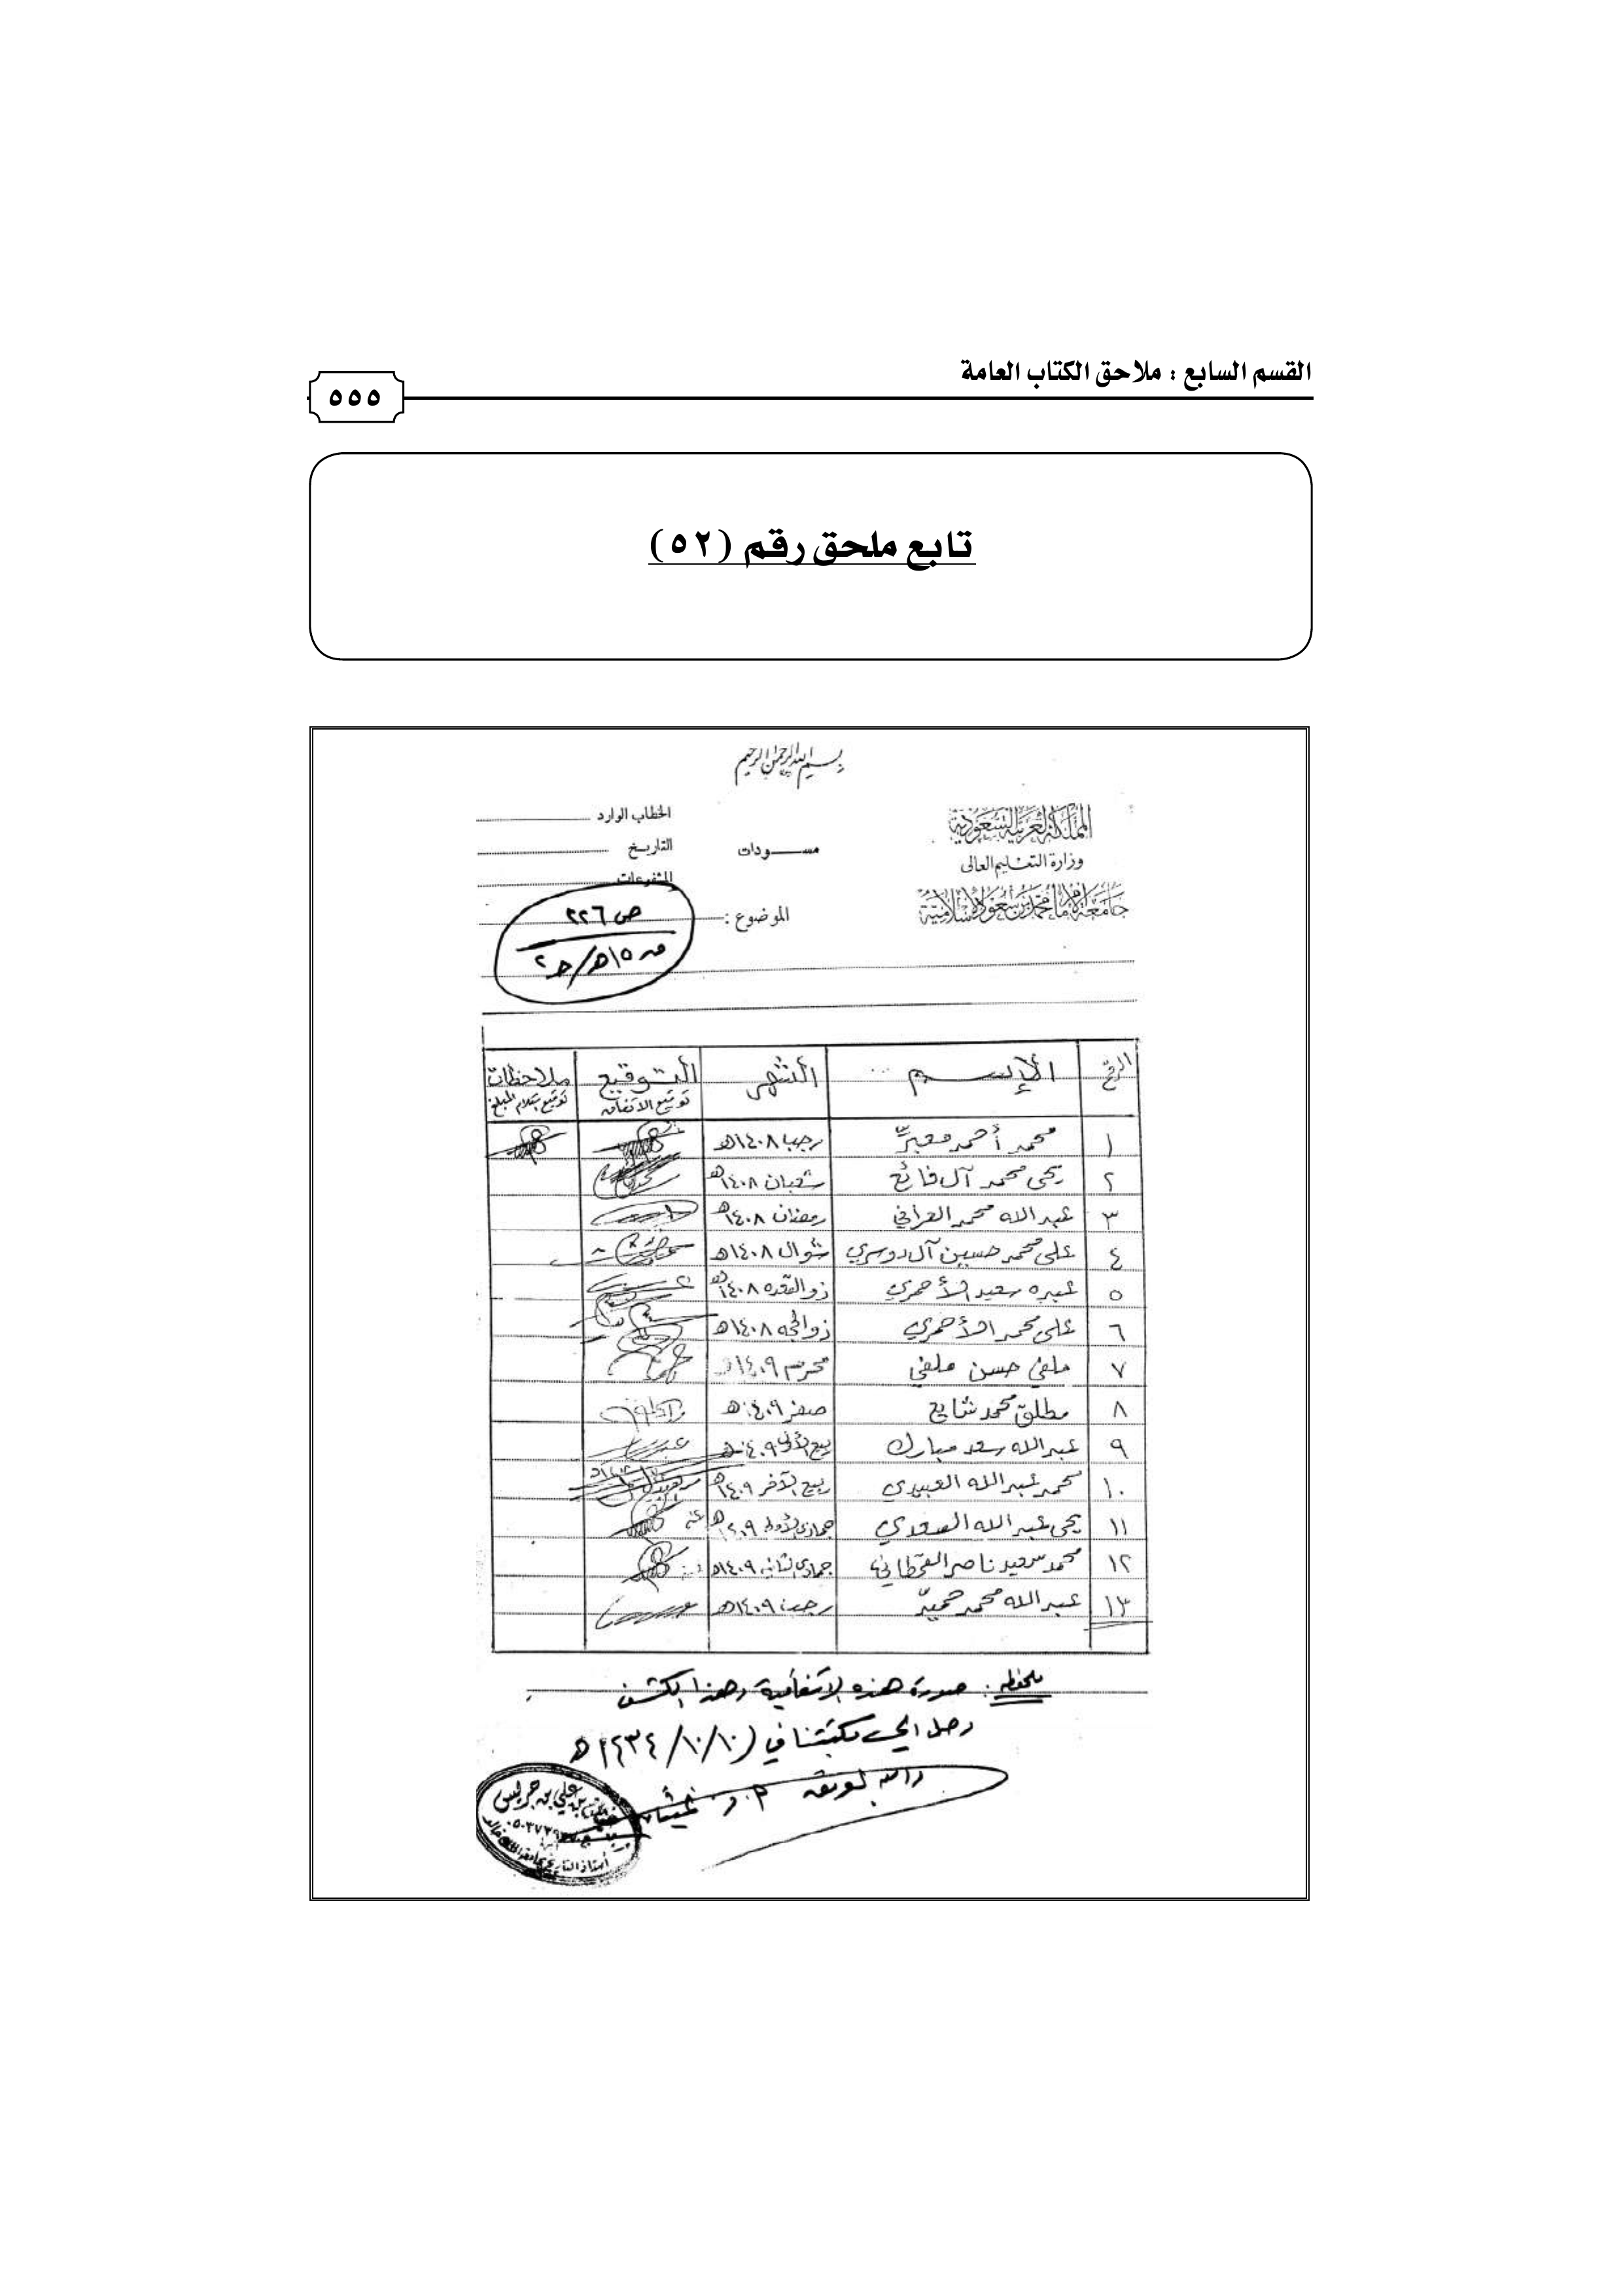 القسم السابع : ملاحق الكتاب العامة
٥٥٥
تابع ملحق رقم (٥٢)
بسم الله الرحمن الرحيم
المملكة العربية السعودية
وزارة التعليم العالى
جامعة الإمام محمد بن سعود الإسلامية
مسودات
الخطاب الوارد
التاريخ
المتفرعات
الموضوع :
ص ٢٢٦
الرقم الإسم الشهر التوقيع ملاحظات
توقيع الاتفاق توقيع بتسلم المبلغ
١ محمد أحمد معبر رجب ١٤٠٨هـ
٢ يحى محمد آل فائع شعبان ١٤٠٨هـ
٣ عبدالله محمد رمضان ١٤٠٨هـ
٤ على محمد حسين آل دوسري شوال ١٤٠٨هـ
٥ عبده سعيد الأحمري ذو القعده ١٤٠٨هـ
٦ على محمد الأحمري ذو الحجه ١٤٠٨هـ
٧ ملفي حسن ملفي محرم ١٤٠٩هـ
٨ مطلق محمد شايع صفر ١٤٠٩هـ
٩ عبدالله سعد مبارك ربيع الأول ١٤٠٩هـ
١٠ محمد عبدالله العبيدي ربيع الآخر ١٤٠٩هـ
١١ يحى عبدالله السعدي جمادى الأولى ١٤٠٩هـ
١٢ محمد سعيد ناصر القحطاني جمادى الثانيه ١٤٠٩هـ
١٣ عبدالله محمد حميد رجب ١٤٠٩هـ
ملحظه : صورة هذه الاتفاقية وهذا الكشف
وصل إلى مكتبتنا في (١٤٣٤/١٠/١٠هـ
والله الموفق أ.د. غيثان
علي بن جريس